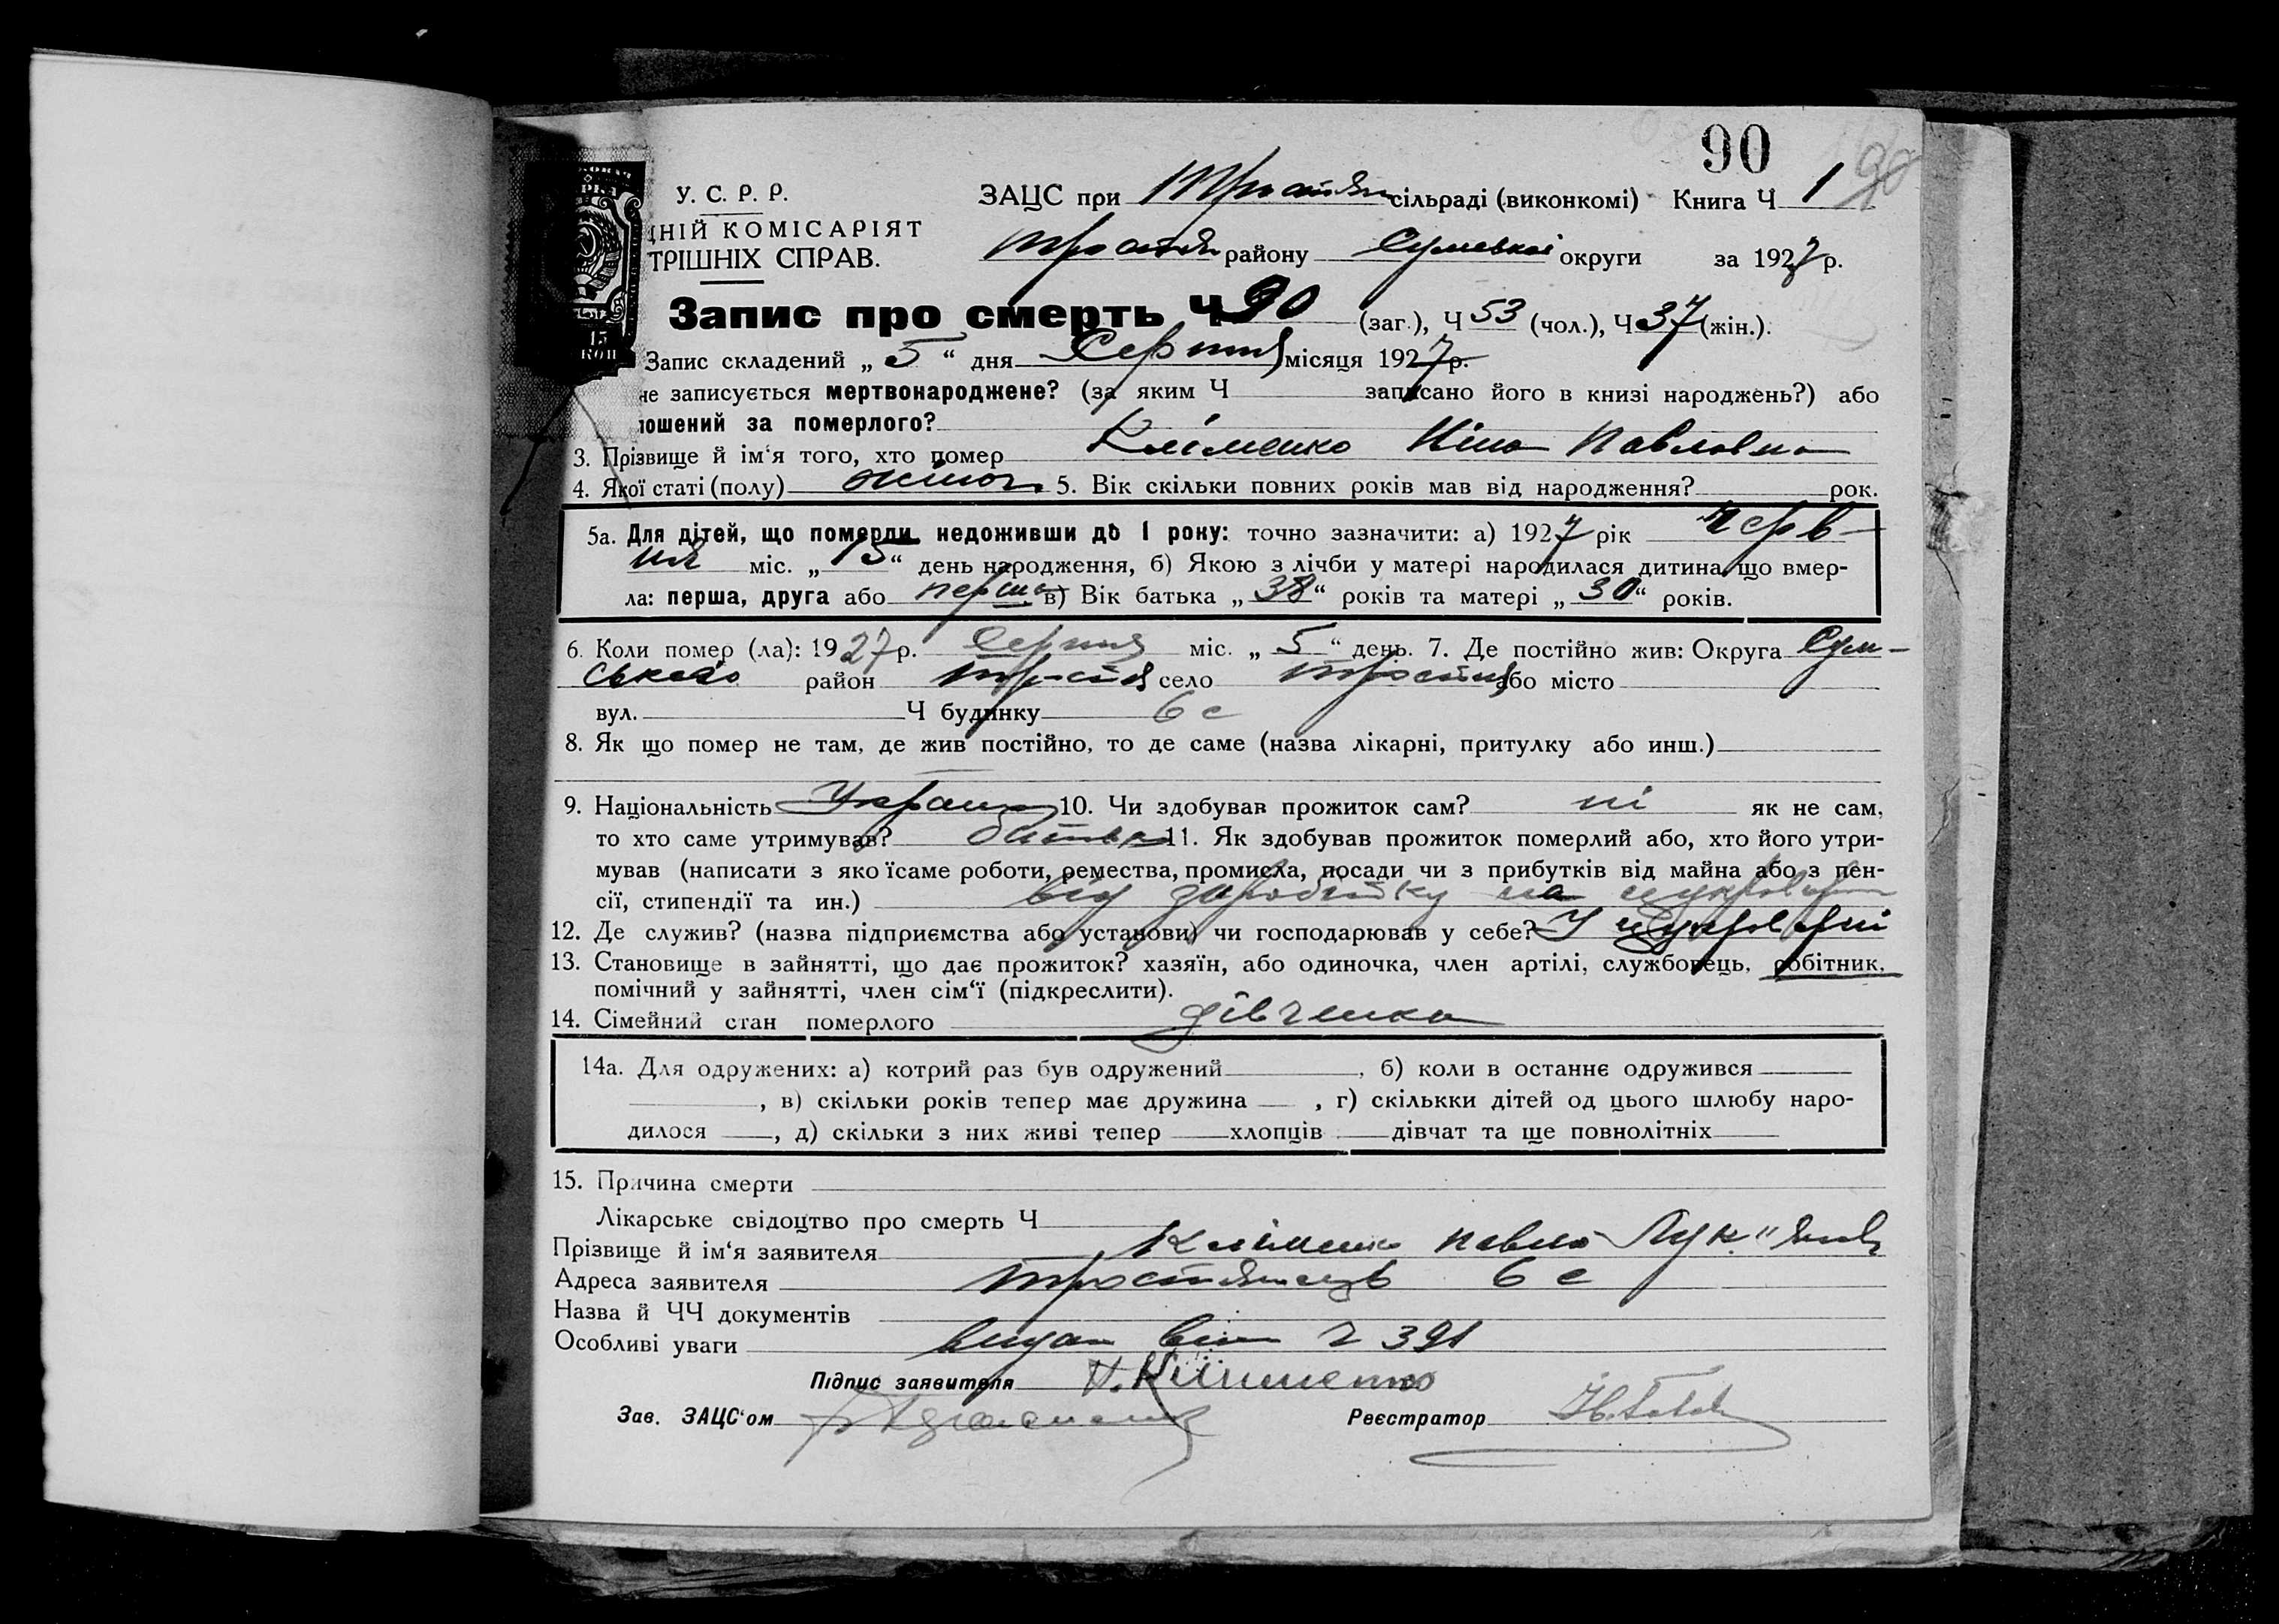 90
90
У. С. Р. Р.
ЗАЦС при Тростян сільраді (виконкомі) Книга Ч 1
ДНІЙ КОМІСАРІЯТ
Тростян району Сумської округи за 1927 р.
ТРІШНІХ СПРАВ.
15
КОП
Запис про смерть Ч 90 (заг.), Ч 53 (чол.), Ч 37 (жін.).
Запис складений „ 5 “ дня Серпня місяця 1927 р.
не записується мертвонароджене? (за яким Ч записано його в книзі народжень?) або
лошений за померлого?
3. Прізвище й ім‘я того, хто помер Кліменко Ніна Павловна
4. Якої статі (полу) жіноч 5. Вік скільки повних років мав від народження? рок.
5а. Для дітей, що померли недоживши до 1 року: точно зазначити: а) 1927 рік Черв-
ня міс. „ 15 “ день народження, б) Якою з лічби у матері народилася дитина, що вмер-
ла: перша, друга або перша в) Вік батька „ 38 “ років та матері „ 30 “ років.
6. Коли помер (ла): 1927 р. Серпня міс. „ 5 “ день. 7. Де постійно жив: Округа Сум-
ського район Тростян село Тростян або місто
вул. Ч будинку 6 с
8. Як що помер не там, де жив постійно, то де саме (назва лікарні, притулку або инш.)
9. Національність Украин 10. Чи здобував прожиток сам? ні як не сам,
то хто саме утримував? батько 11. Як здобував прожиток померлий або, хто його утри-
мував (написати з якоїсаме роботи, ремества, промисла, посади чи з прибутків від майна або з пен-
сії, стипендії та ин.) від заробітку на цукроварн
12. Де служив? (назва підприємства або установи) чи господарював у себе? У цукроварні
13. Становище в зайнятті, що дає прожиток? хазяїн, або одиночка, член артілі, службовець, робітник,
помічний у зайнятті, член сім‘ї (підкреслити).
14. Сімейний стан померлого дівченка
14а. Для одружених: а) котрий раз був одружений , б) коли в останнє одружився
, в) скільки років тепер має дружина , г) скількки дітей од цього шлюбу наро-
дилося , д) скільки з них живі тепер хлопців дівчат та ще повнолітніх
15. Причина смерти
Лікарське свідоцтво про смерть Ч
Прізвище й ім‘я заявителя Кліменко Павло Лук"янов
Адреса заявителя Тростянець 6 с
Назва й ЧЧ документів
Особливі уваги видан вип ч 391
Підпис заявителя П. Кліменко
Зав. ЗАЦС‘ом Реєстратор